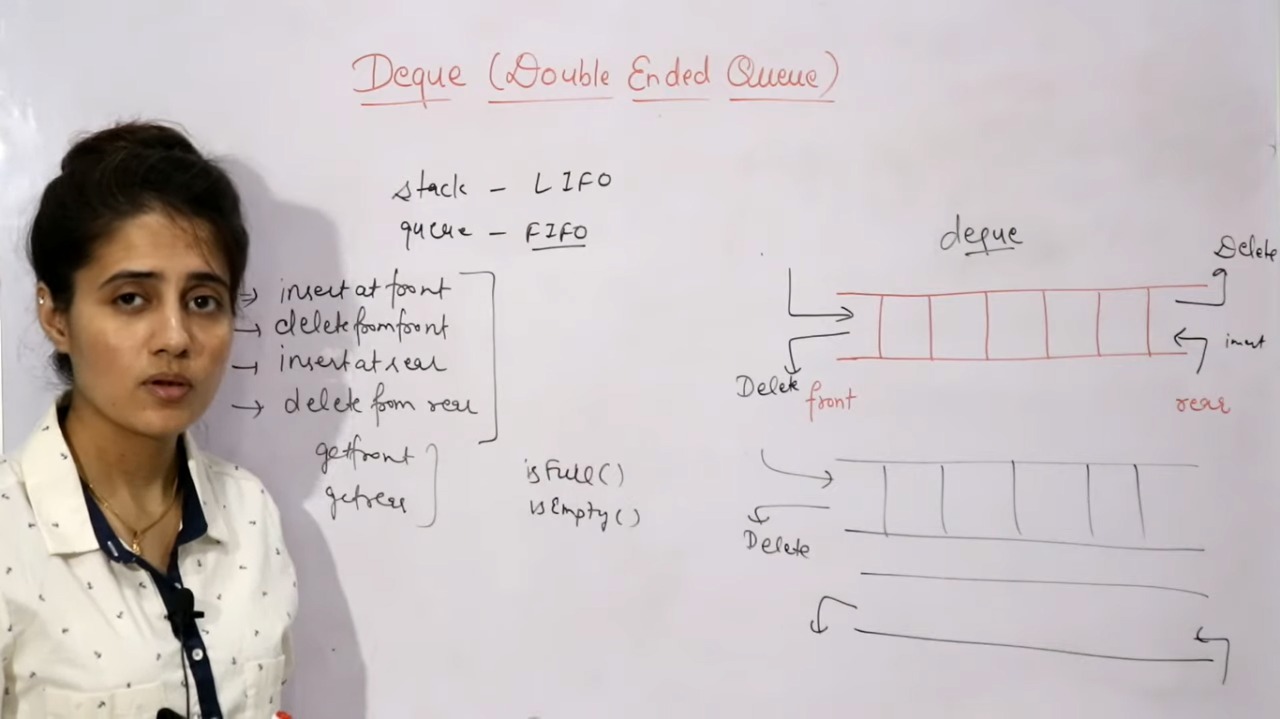 Deque (Double Ended Queue)
stack - LIFO
queue - FIFO
insert at front
delete from front
insert at rear
delete from rear
getfront
getrear
isFull()
isEmpty()
deque
Delete
insert
Delete
front
rear
Delete